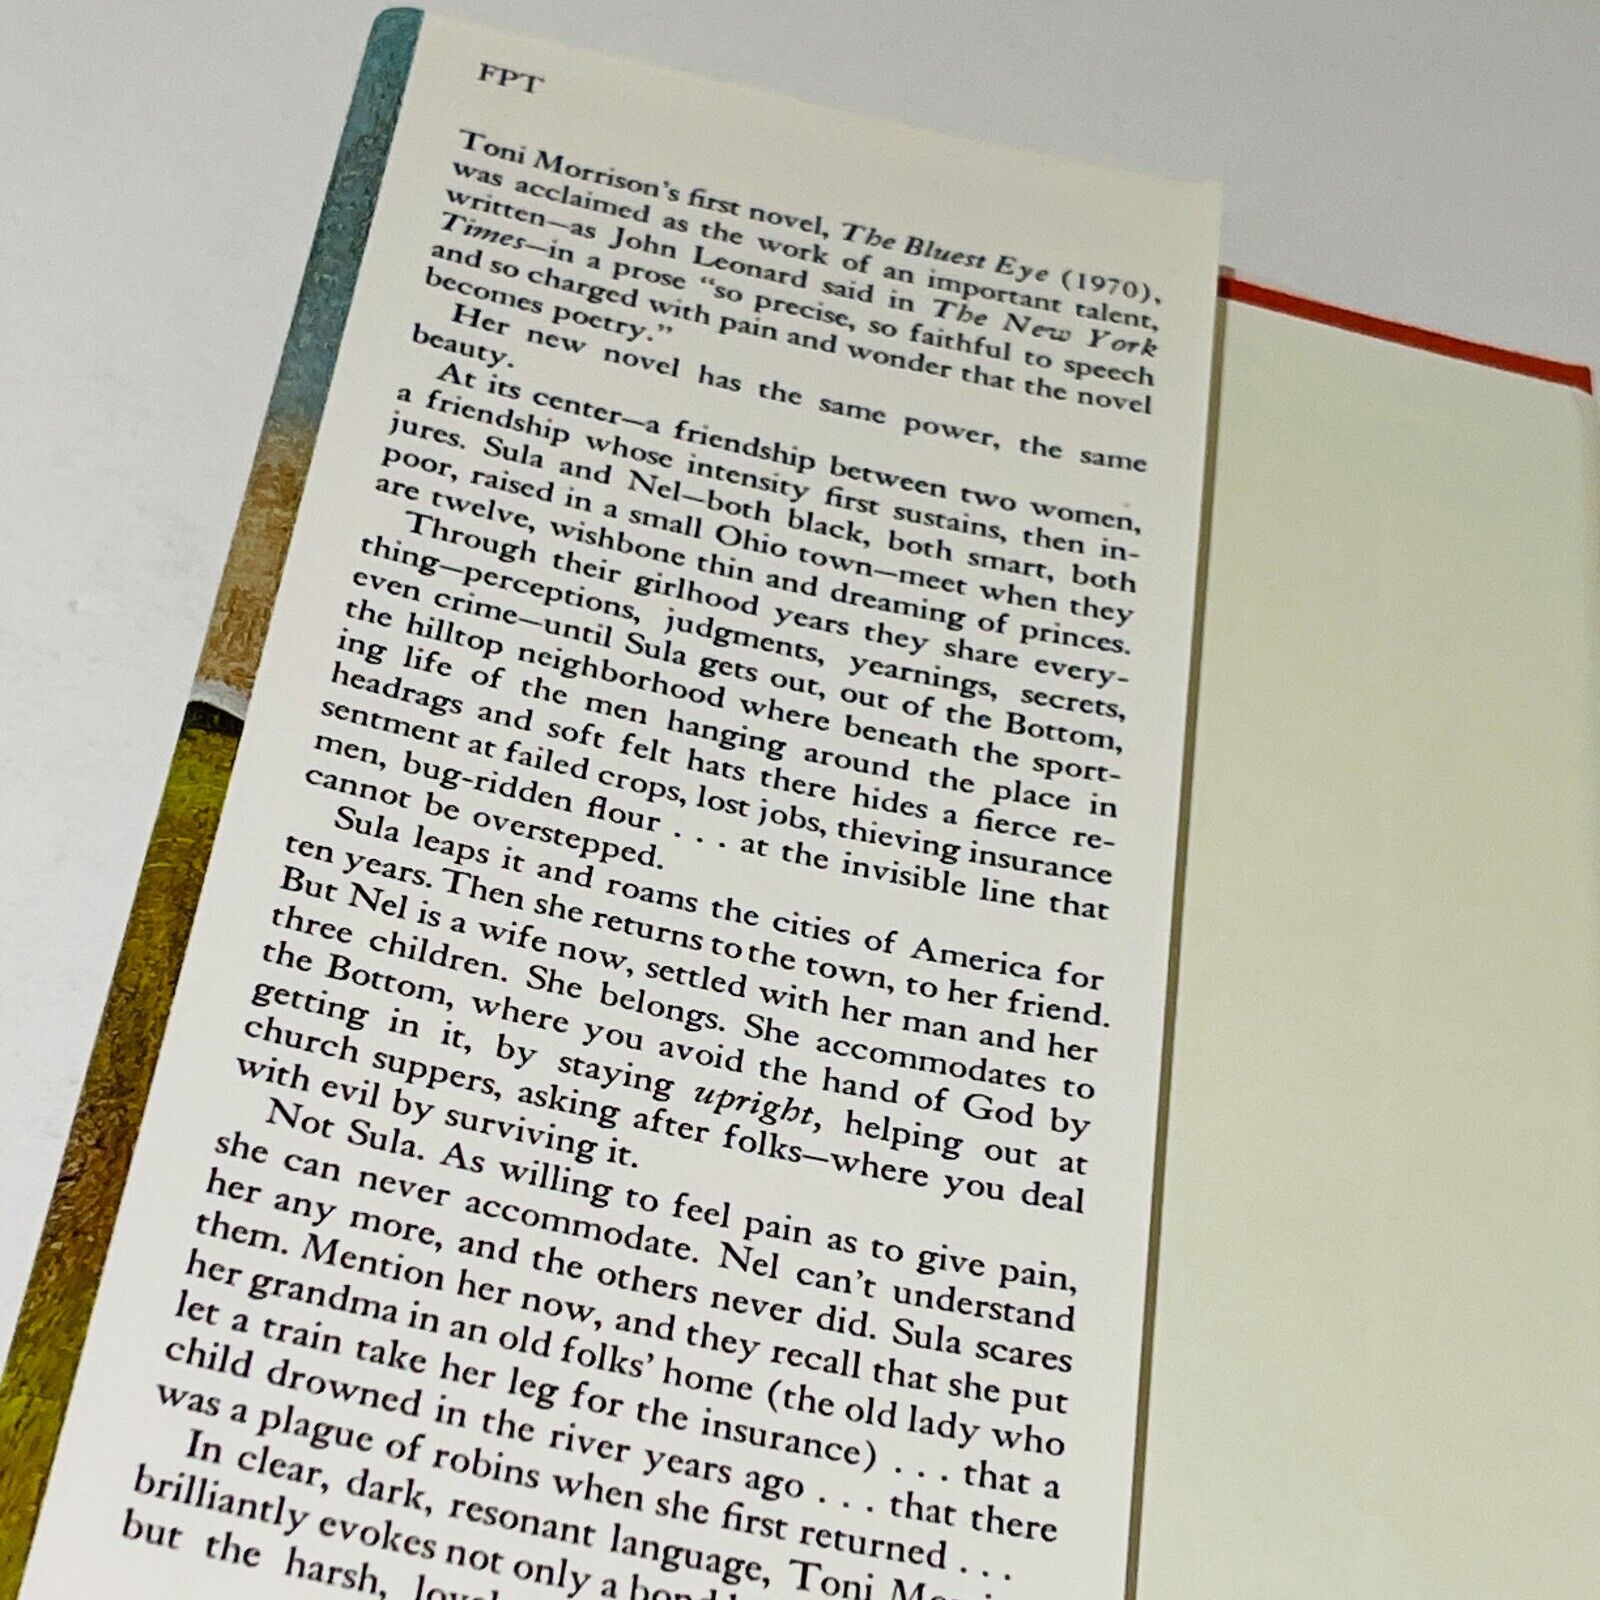 FPT
Toni Morrison's first novel, The Bluest Eye (1970),
was acclaimed as the work of an important talent,
written—as John Leonard said in The New York
Times—in a prose "so precise, so faithful to speech
and so charged with pain and wonder that the novel
becomes poetry."
Her new novel has the same power, the same
beauty.
At its center—a friendship between two women,
a friendship whose intensity first sustains, then in-
jures. Sula and Nel—both black, both smart, both
poor, raised in a small Ohio town—meet when they
are twelve, wishbone thin and dreaming of princes.
Through their girlhood years they share every-
thing—perceptions, judgments, yearnings, secrets,
even crime—until Sula gets out, out of the Bottom,
the hilltop neighborhood where beneath the sport-
ing life of the men hanging around the place in
headrags and soft felt hats there hides a fierce re-
sentment at failed crops, lost jobs, thieving insurance
men, bug-ridden flour . . . at the invisible line that
cannot be overstepped.
Sula leaps it and roams the cities of America for
ten years. Then she returns to the town, to her friend.
But Nel is a wife now, settled with her man and her
three children. She belongs. She accommodates to
the Bottom, where you avoid the hand of God by
getting in it, by staying upright, helping out at
church suppers, asking after folks—where you deal
with evil by surviving it.
Not Sula. As willing to feel pain as to give pain,
she can never accommodate. Nel can't understand
her any more, and the others never did. Sula scares
them. Mention her now, and they recall that she put
her grandma in an old folks' home (the old lady who
let a train take her leg for the insurance) . . . that a
child drowned in the river years ago . . . that there
was a plague of robins when she first returned . . .
In clear, dark, resonant language, Toni
brilliantly evokes not only a bond
but the harsh,